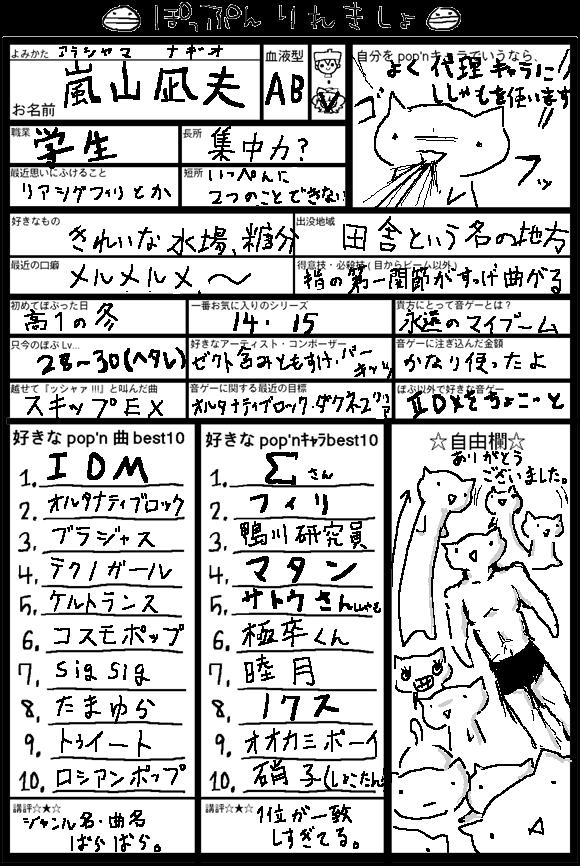 ぽっぷん りれきしょ
よみかた アラシヤマ ナギオ
お名前 嵐山 凪夫
血液型
AB
自分を pop'nキャラでいうなら、
よく代理キャラに
ししゃもを使います
ゴ
フッ
職業 学生
長所 集中力?
最近思いにふけること
リアシグフィリとか
短所 いっぺんに
2つのことできない
好きなもの
きれいな水場、糖分
出没地域
田舎という名の地方
最近の口癖
メルメルメ、〜
得意技・必殺技(目からビーム以外)
指の第一関節がすっげ曲がる
初めてぽぷった日
高1の冬
一番お気に入りのシリーズ
14・15
貴方にとって音ゲーとは?
永遠のマイブーム
只今のぽぷLv...
28〜30(ヘタレ)
好きなアーティスト・コンポーザー
ゼクト含みともすけ・バーキッツ
音ゲーに注ぎ込んだ金額
かなり使ったよ
越せて『ッシャァ!!!』と叫んだ曲
スキップEX
音ゲーに関する最近の目標
オルタナティブロック・ダクネ2クリア
ぽぷ以外で好きな音ゲー
ⅡDXをちょこっと
好きな pop'n 曲 best10
1. IDM
2. オルタナティブロック
3. ブラジャス
4. テクノガール
5. ケルトランス
6. コスモポップ
7. sigsig
8. たまゆら
9. トゥイート
10. ロシアンポップ
講評☆★☆
ジャンル名・曲名
ばらばら。
好きな pop'nキャラbest10
1. Σさん
2. フィリ
3. 鴨川研究員
4. マタン
5. サトウさん
6. 極卒くん
7. 睦月
8. 1クス
9. オオカミボーイ
10. 硝子(しょこたん)
講評☆★☆
1位が一致
しすぎてる。
☆自由欄☆
ありがとう
ございました。